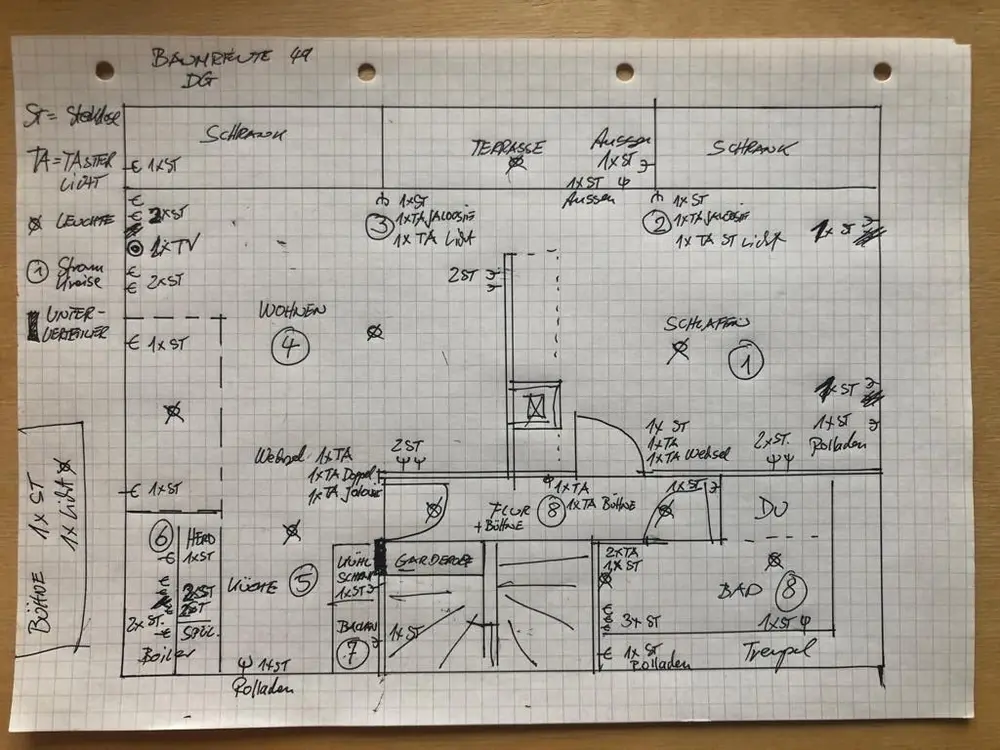 BAUMREUTE 49
DG
ST = Steckdose
TA = TASTER
LICHT
LEUCHTE
1 Strom
kreise
UNTER-
VERTEILER
SCHRANK
1x ST
TERRASSE
Aussen
1x ST
1x ST
Aussen
SCHRANK
2x ST
1x TV
2x ST
1x ST
1x ST
3
1x ST
1x TA JALOUSIE
1x TA Licht
2
1x ST
1x TA JALOUSIE
1x TA ST Licht
1x ST
2 ST
WOHNEN
4
SCHLAFEN
1
1x ST
1x ST
Rolladen
Wechsel 1x TA
1x TA Doppel
1x TA Jalousie
2 ST
1x ST
1x TA
1x TA Wechsel
2x ST.
1x TA
1x TA BÜHNE
FLUR
+ BÜHNE
8
1x ST
DU
6
HERD
1x ST
2x ST
2 ST
SPÜL.
2x ST.
Boiler
KÜCHE 5
KÜHL
SCHRANK
1x ST
GARDEROBE
1x ST
7
1x ST
Rolladen
2x TA
1x ST
BAD 8
3x ST
1x ST
1x ST
Rolladen
Trempel
BÜHNE 1x ST
1x Licht